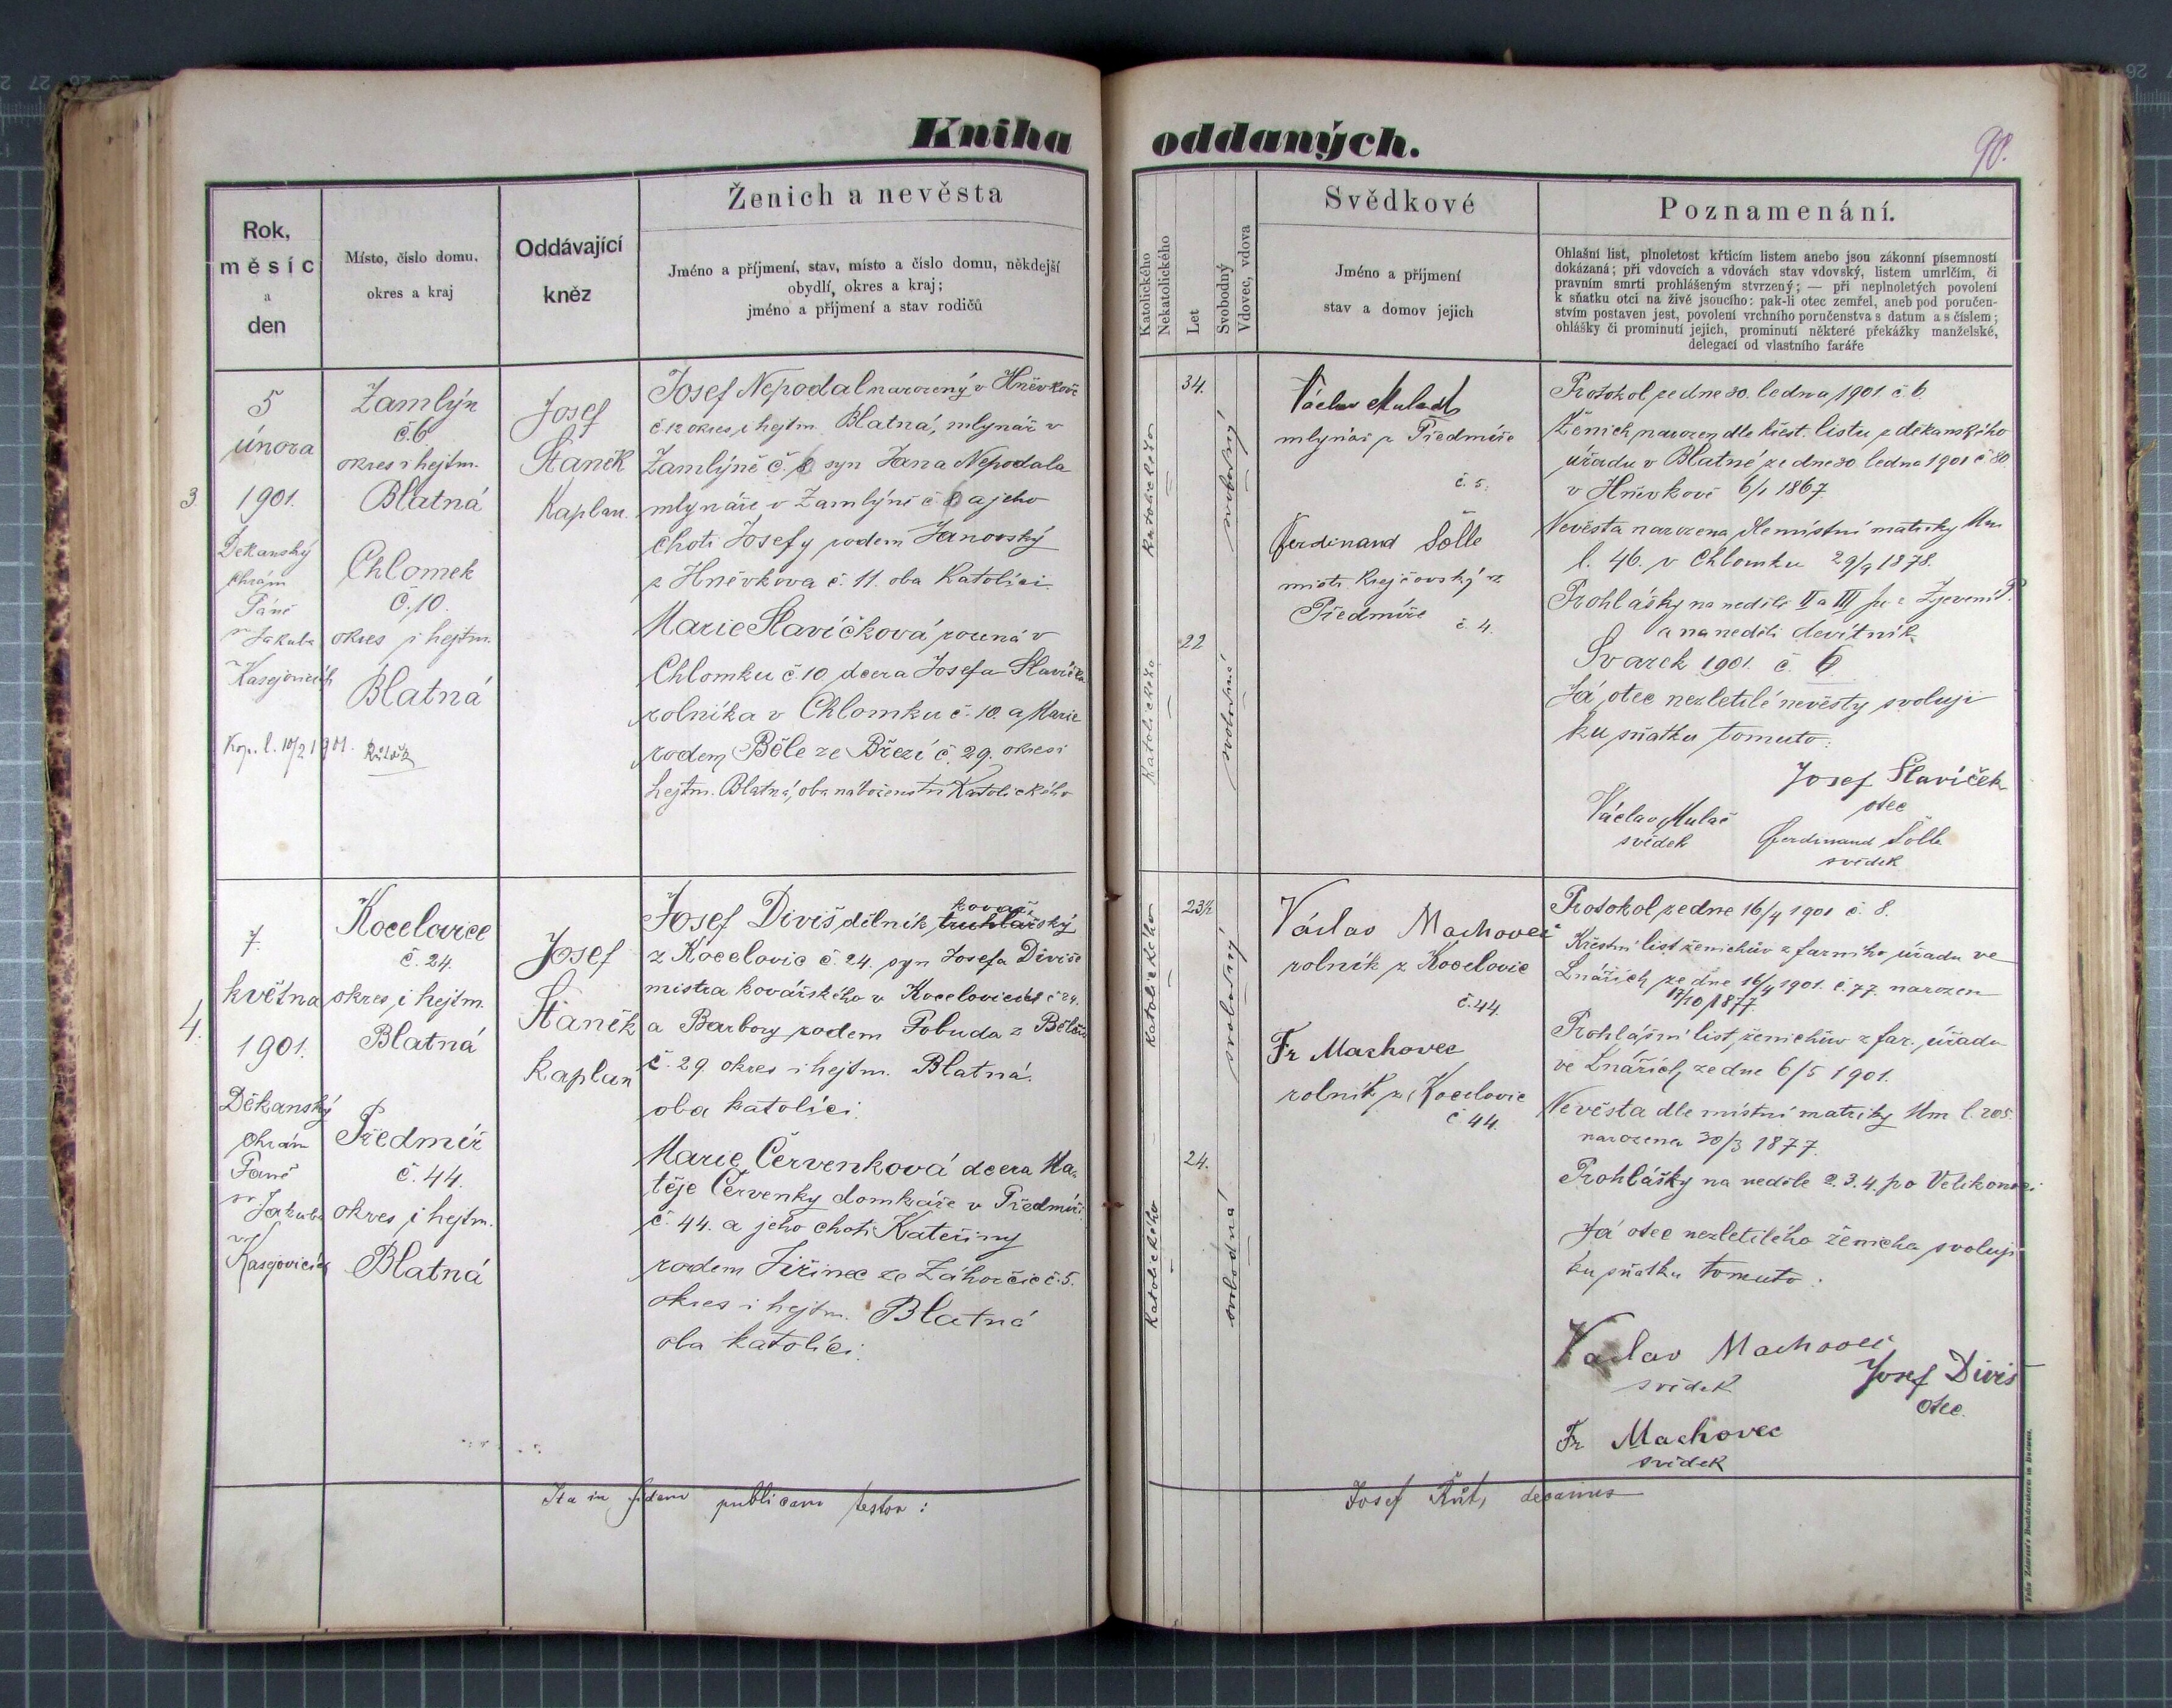 Kniha oddaných.
90.
Rok,
měsíc
a
den
Místo, číslo domu,
okres a kraj
Oddávající
kněz
Ženich a nevěsta
Jméno a příjmení, stav, místo a číslo domu, někdejší
obydlí, okres a kraj;
jméno a příjmení a stav rodičů
Katolického
Nekatolického
Let
Svobodný
Vdovec, vdova
Svědkové
Jméno a příjmení
stav a domov jejich
Poznamenání.
Ohlašní list, plnoletost křticím listem anebo jsou zákonní písemností
dokázaná; při vdovcích a vdovách stav vdovský, listem umrlčím, či
pravním smrti prohlášeným stvrzený; — při neplnoletých povolení
k sňatku otci na živě jsoucího: pak-li otec zemřel, aneb pod poručen-
stvím postaven jest, povolení vrchního poručenstva s datum a s číslem;
ohlášky či prominutí jejich, prominutí některé překážky manželské,
delegací od vlastního faráře
3.
5
února
1901.
Děkanský
chrám
Páně
sv Jakuba
v Kasejovicích
Kop. l. 10/2 1901.
Zamlýn
č.6
okres i hejtm.
Blatná
Chlomek
č.10.
okres i hejtm.
Blatná
Josef
Staněk
Kaplan.
Josef Nepodal narozený v Hněvkově
č.12 okres i hejtm. Blatná, mlynář v
Zamlýně č. syn Jana Nepodala
mlynáře v Zamlýně č. a jeho
choti Josefy rodem Janovský
z Hněvkova č. 11. oba Katolíci.
Marie Slavíčková rozená v
Chlomku č.10, dcera Josefa Slavíčka
rolníka v Chlomku č. 10. a Marie
rodem Běle ze Březí č. 29. okres i
hejtm. Blatná, oba náboženství Katolického
Katolického
34.
svobodný
Katolického
22
svobodná
Václav
mlynář z Předmíře
č. 5.
Ferdinand Šolle
mistr krejčovský z
Předmíře č. 4.
Protokol ze dne 30. ledna 1901 č. 6.
Ženich narozen dle křest. listu z děkanského
úřadu v Blatné ze dne 30. ledna 1901 č. 80.
v Hněvkově 6/1 1867.
Nevěsta narozena dle místní matriky
l. 46. v Chlomku 29/9 1878.
Prohlášky na neděli II a III po Zjevení P.
a na neděli devítník
Svazek 1901. č. 6
Já, otec nezletilé nevěsty svoluji
ku sňatku tomuto:
Josef Slavíček
otec
Václav Mulač
svědek
Ferdinand Šolle
svědek
4.
7.
května
1901.
Děkanský
chrám
Páně
sv Jakuba
v Kasejovicích
Kocelovice
č. 24.
okres i hejtm.
Blatná
Předmíř
č. 44.
okres i hejtm.
Blatná
Josef
Staněk
Kaplan
kovář
Josef Diviš dělník truhlářský
z Kocelovic č. 24. syn Josefa Diviše
mistra kovářského v Kocelovicích č 24.
a Barbory rodem Pobuda z
č. 29. okres i hejtm. Blatná.
oba katolíci.
Marie Červenková dcera Ma-
těje Červenky domkáře v Předmíři
č. 44. a jeho choti Kateřiny
rodem Jiřinec ze Záhorčic č. 5.
okres i hejtm. Blatná
oba katolíci.
Katolického
23½
svobodný
Katolického
24.
svobodná
Václav Machovec
rolník z Kocelovic
č.44.
Fr Machovec
rolník z Kocelovic
č 44.
Protokol ze dne 16/4 1901 č. 8.
Křestní list ženichův z farního úřadu ve
Lnářích ze dne 16/4 1901. č. 77. narozen
17/10 1877.
Prohlášní list ženichův z far. úřadu
ve Lnářích ze dne 6/5 1901.
Nevěsta dle místní matriky l. 205.
narozena 30/3 1877.
Prohlášky na neděle 2. 3. 4. po Velikonoci
Já otec nezletilého ženicha svoluji
ku sňatku tomuto:
Václav Machovec
svědek
Josef Diviš
otec.
Fr Machovec
svědek
Ita in fidem publicam testor:
Josef Růt, decanus